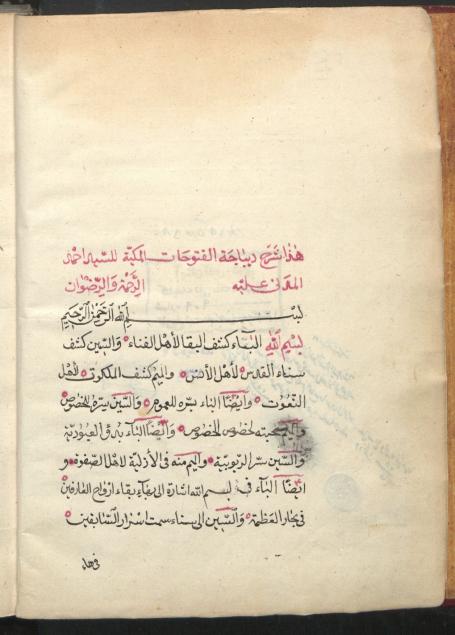 هذا شرح ديباجة الفتوحات المكية للسيد احمد
المدني عليه الرحمة والرضوان
بسم الله الرحمن الرحيم
بسم الله الباء كشف البقا لأهل الفناء والسين كشف
سناء القدس لأهل الأنس والميم كشف الملكوت لأهل
النعوت وأيضاً الباء بره للعموم والسين سره للخصوص
والميم محبته لخصوص الخصوص وأيضاً الباء بدو العبودية
والسين سر الربوبية والميم منه في الأزلية لاهل الصفوة و
ايضاً الباء في بسم الله اشارة الى بقاء ارواح العارفين
في بحار العظمة والسين الى سناء سمت اسرار السابقين